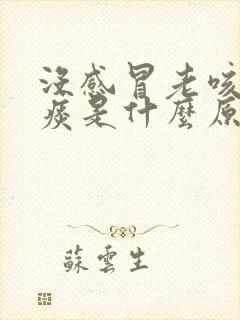 沒感冒老咳
痰是什麼原
蘇雲生